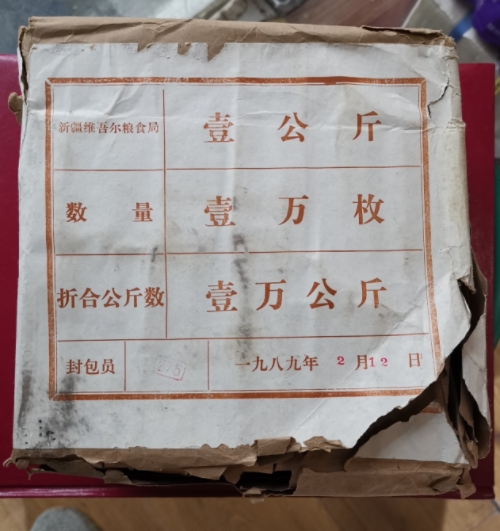 新疆维吾尔粮食局 壹公斤
数量 壹万枚
折合公斤数 壹万公斤
封包员 一九八九年2月12日